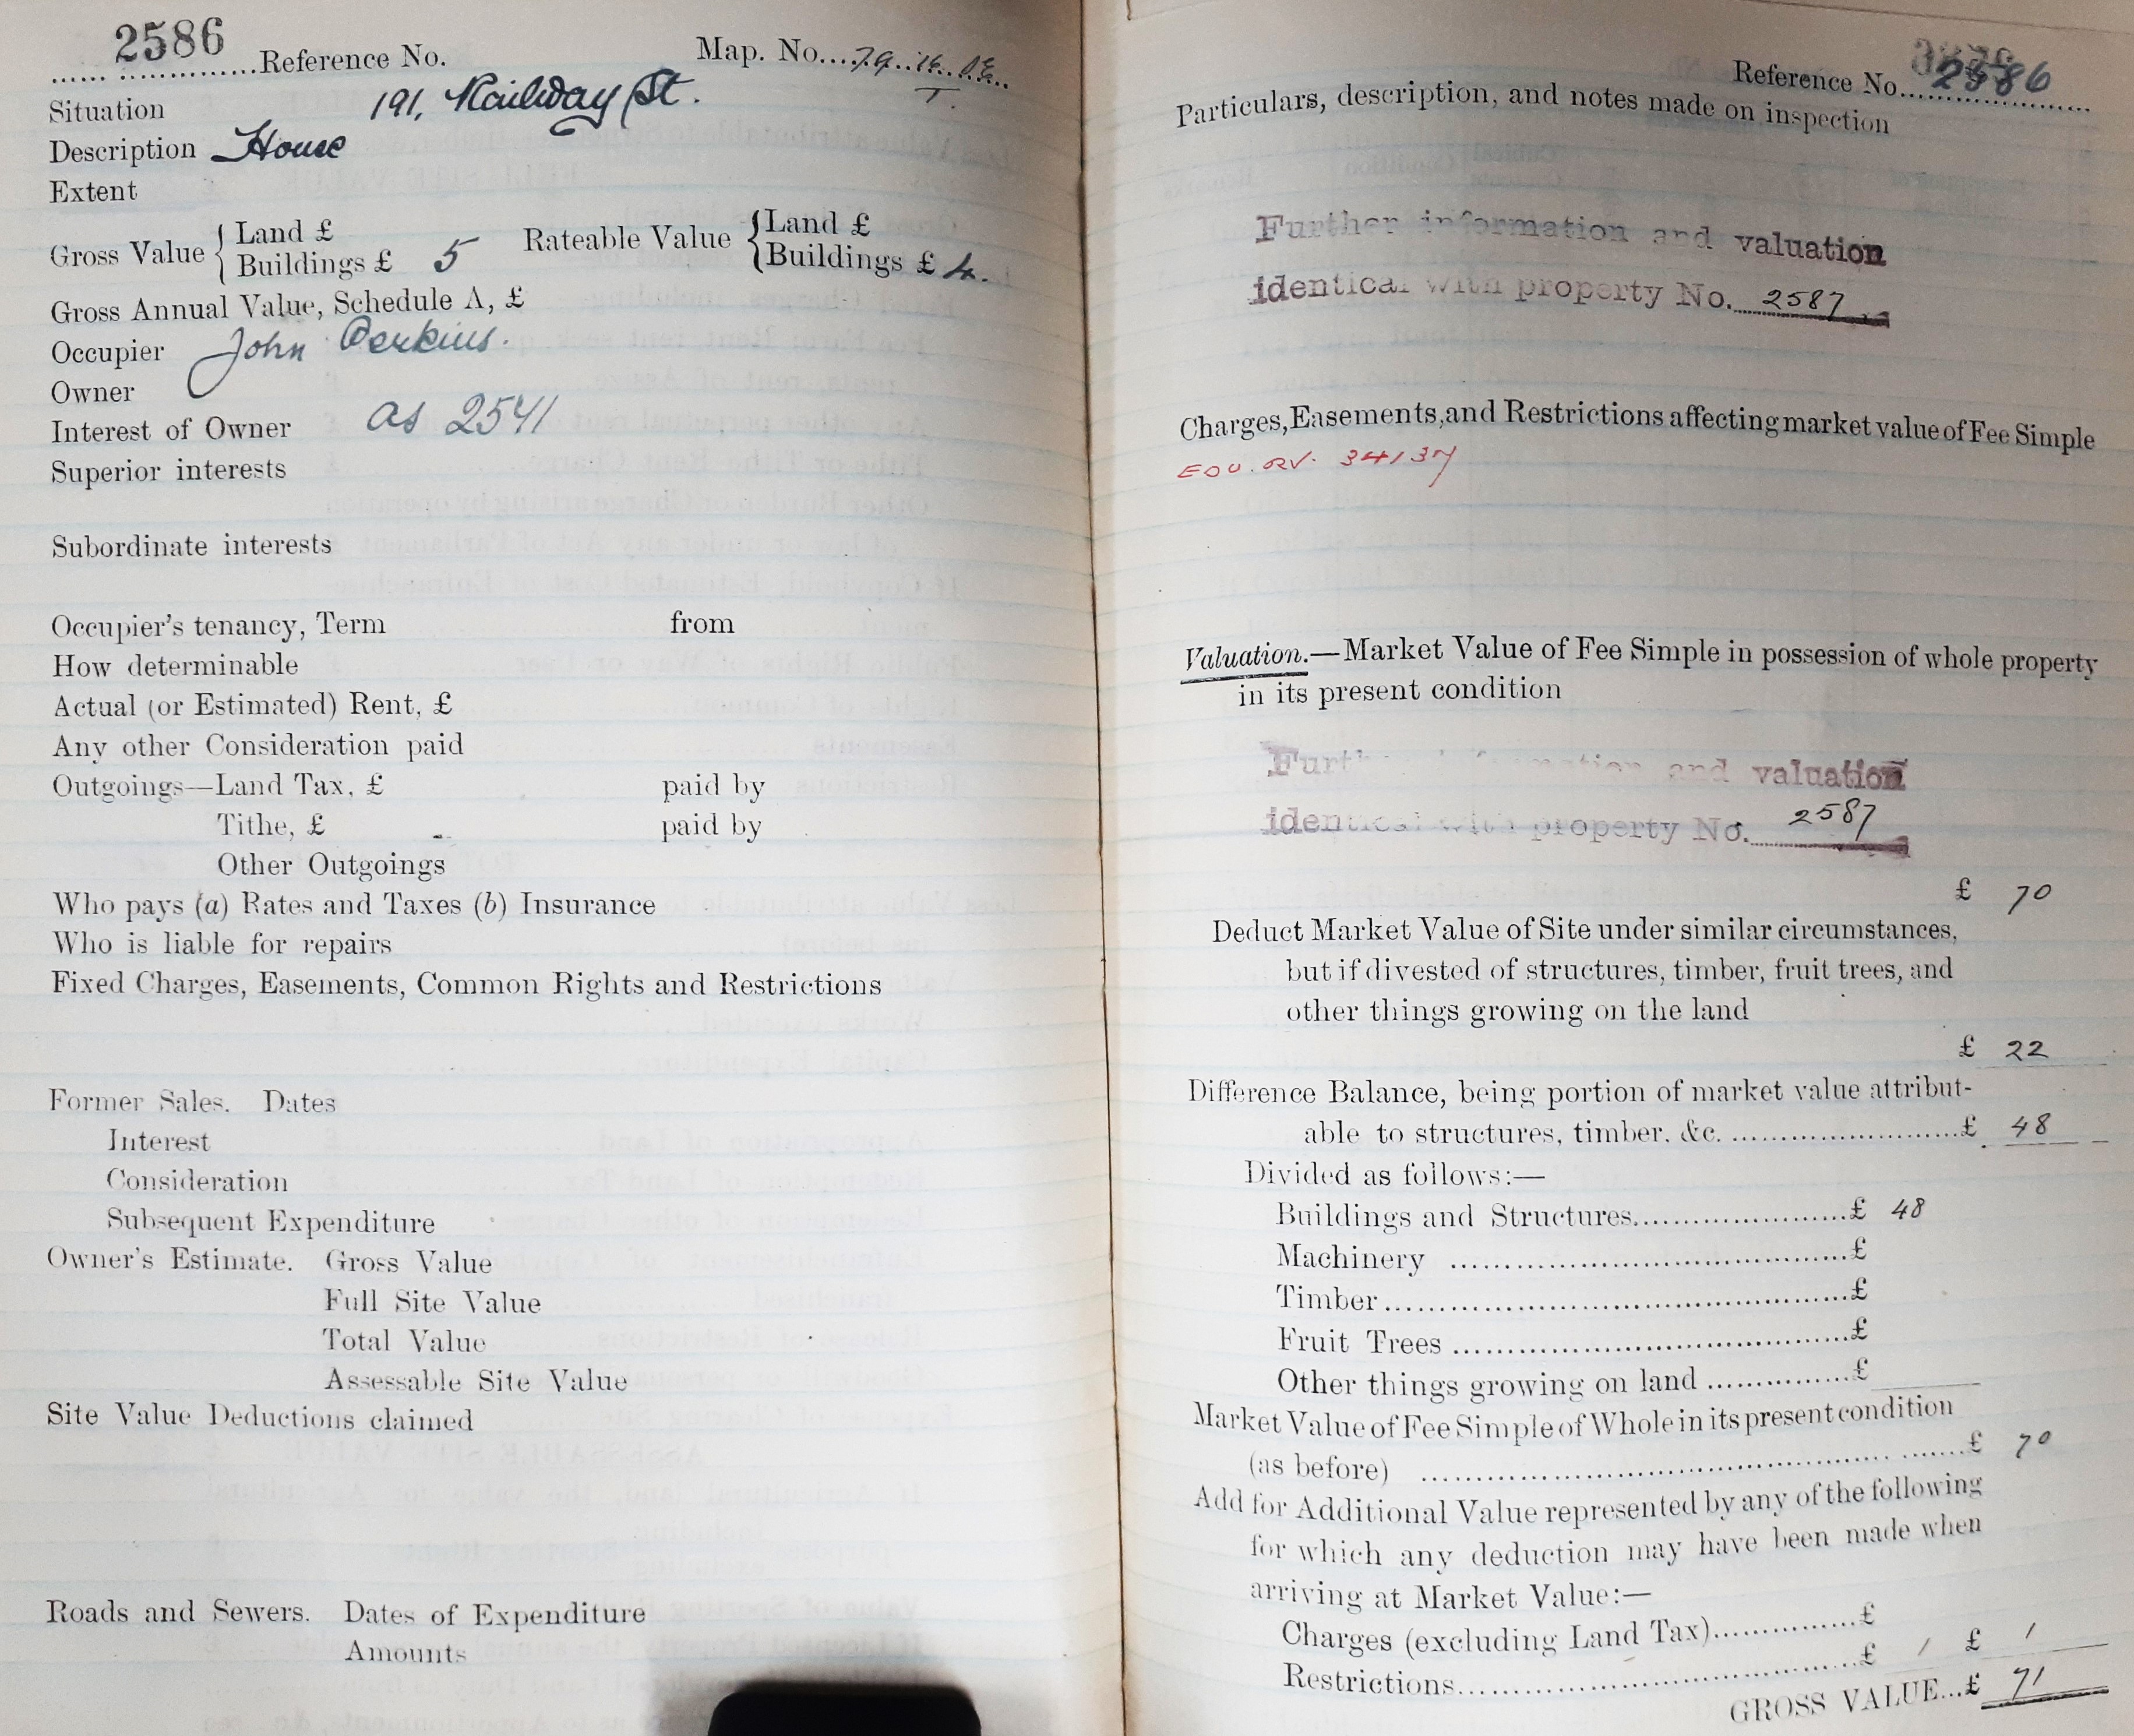 2586 Reference No. Map. No. 79.16.
Situation 191, Railway St.
Description House
Extent
Gross Value { Land £ Rateable Value { Land £
Buildings £ 5 Buildings £ 4.
Gross Annual Value, Schedule A, £
Occupier John Perkins.
Owner
Interest of Owner as 2541
Superior interests
Subordinate interests
Occupier's tenancy, Term from
How determinable
Actual (or Estimated) Rent, £
Any other Consideration paid
Outgoings—Land Tax, £ paid by
Tithe, £ paid by
Other Outgoings
Who pays (a) Rates and Taxes (b) Insurance
Who is liable for repairs
Fixed Charges, Easements, Common Rights and Restrictions
Former Sales. Dates
Interest
Consideration
Subsequent Expenditure
Owner's Estimate. Gross Value
Full Site Value
Total Value
Assessable Site Value
Site Value Deductions claimed
Roads and Sewers. Dates of Expenditure
Amounts
Reference No. 2586
Particulars, description, and notes made on inspection
Further information and valuation
identical with property No. 2587
Charges, Easements, and Restrictions affecting market value of Fee Simple
34137
Valuation.—Market Value of Fee Simple in possession of whole property
in its present condition
Further information and valuation
identical with property No. 2587
£ 70
Deduct Market Value of Site under similar circumstances,
but if divested of structures, timber, fruit trees, and
other things growing on the land
£ 22
Difference Balance, being portion of market value attribut-
able to structures, timber, &c. £ 48
Divided as follows:—
Buildings and Structures £ 48
Machinery £
Timber £
Fruit Trees £
Other things growing on land £
Market Value of Fee Simple of Whole in its present condition
(as before) £ 70
Add for Additional Value represented by any of the following
for which any deduction may have been made when
arriving at Market Value:—
Charges (excluding Land Tax) £
Restrictions £ 1 £ 1
GROSS VALUE...£ 71